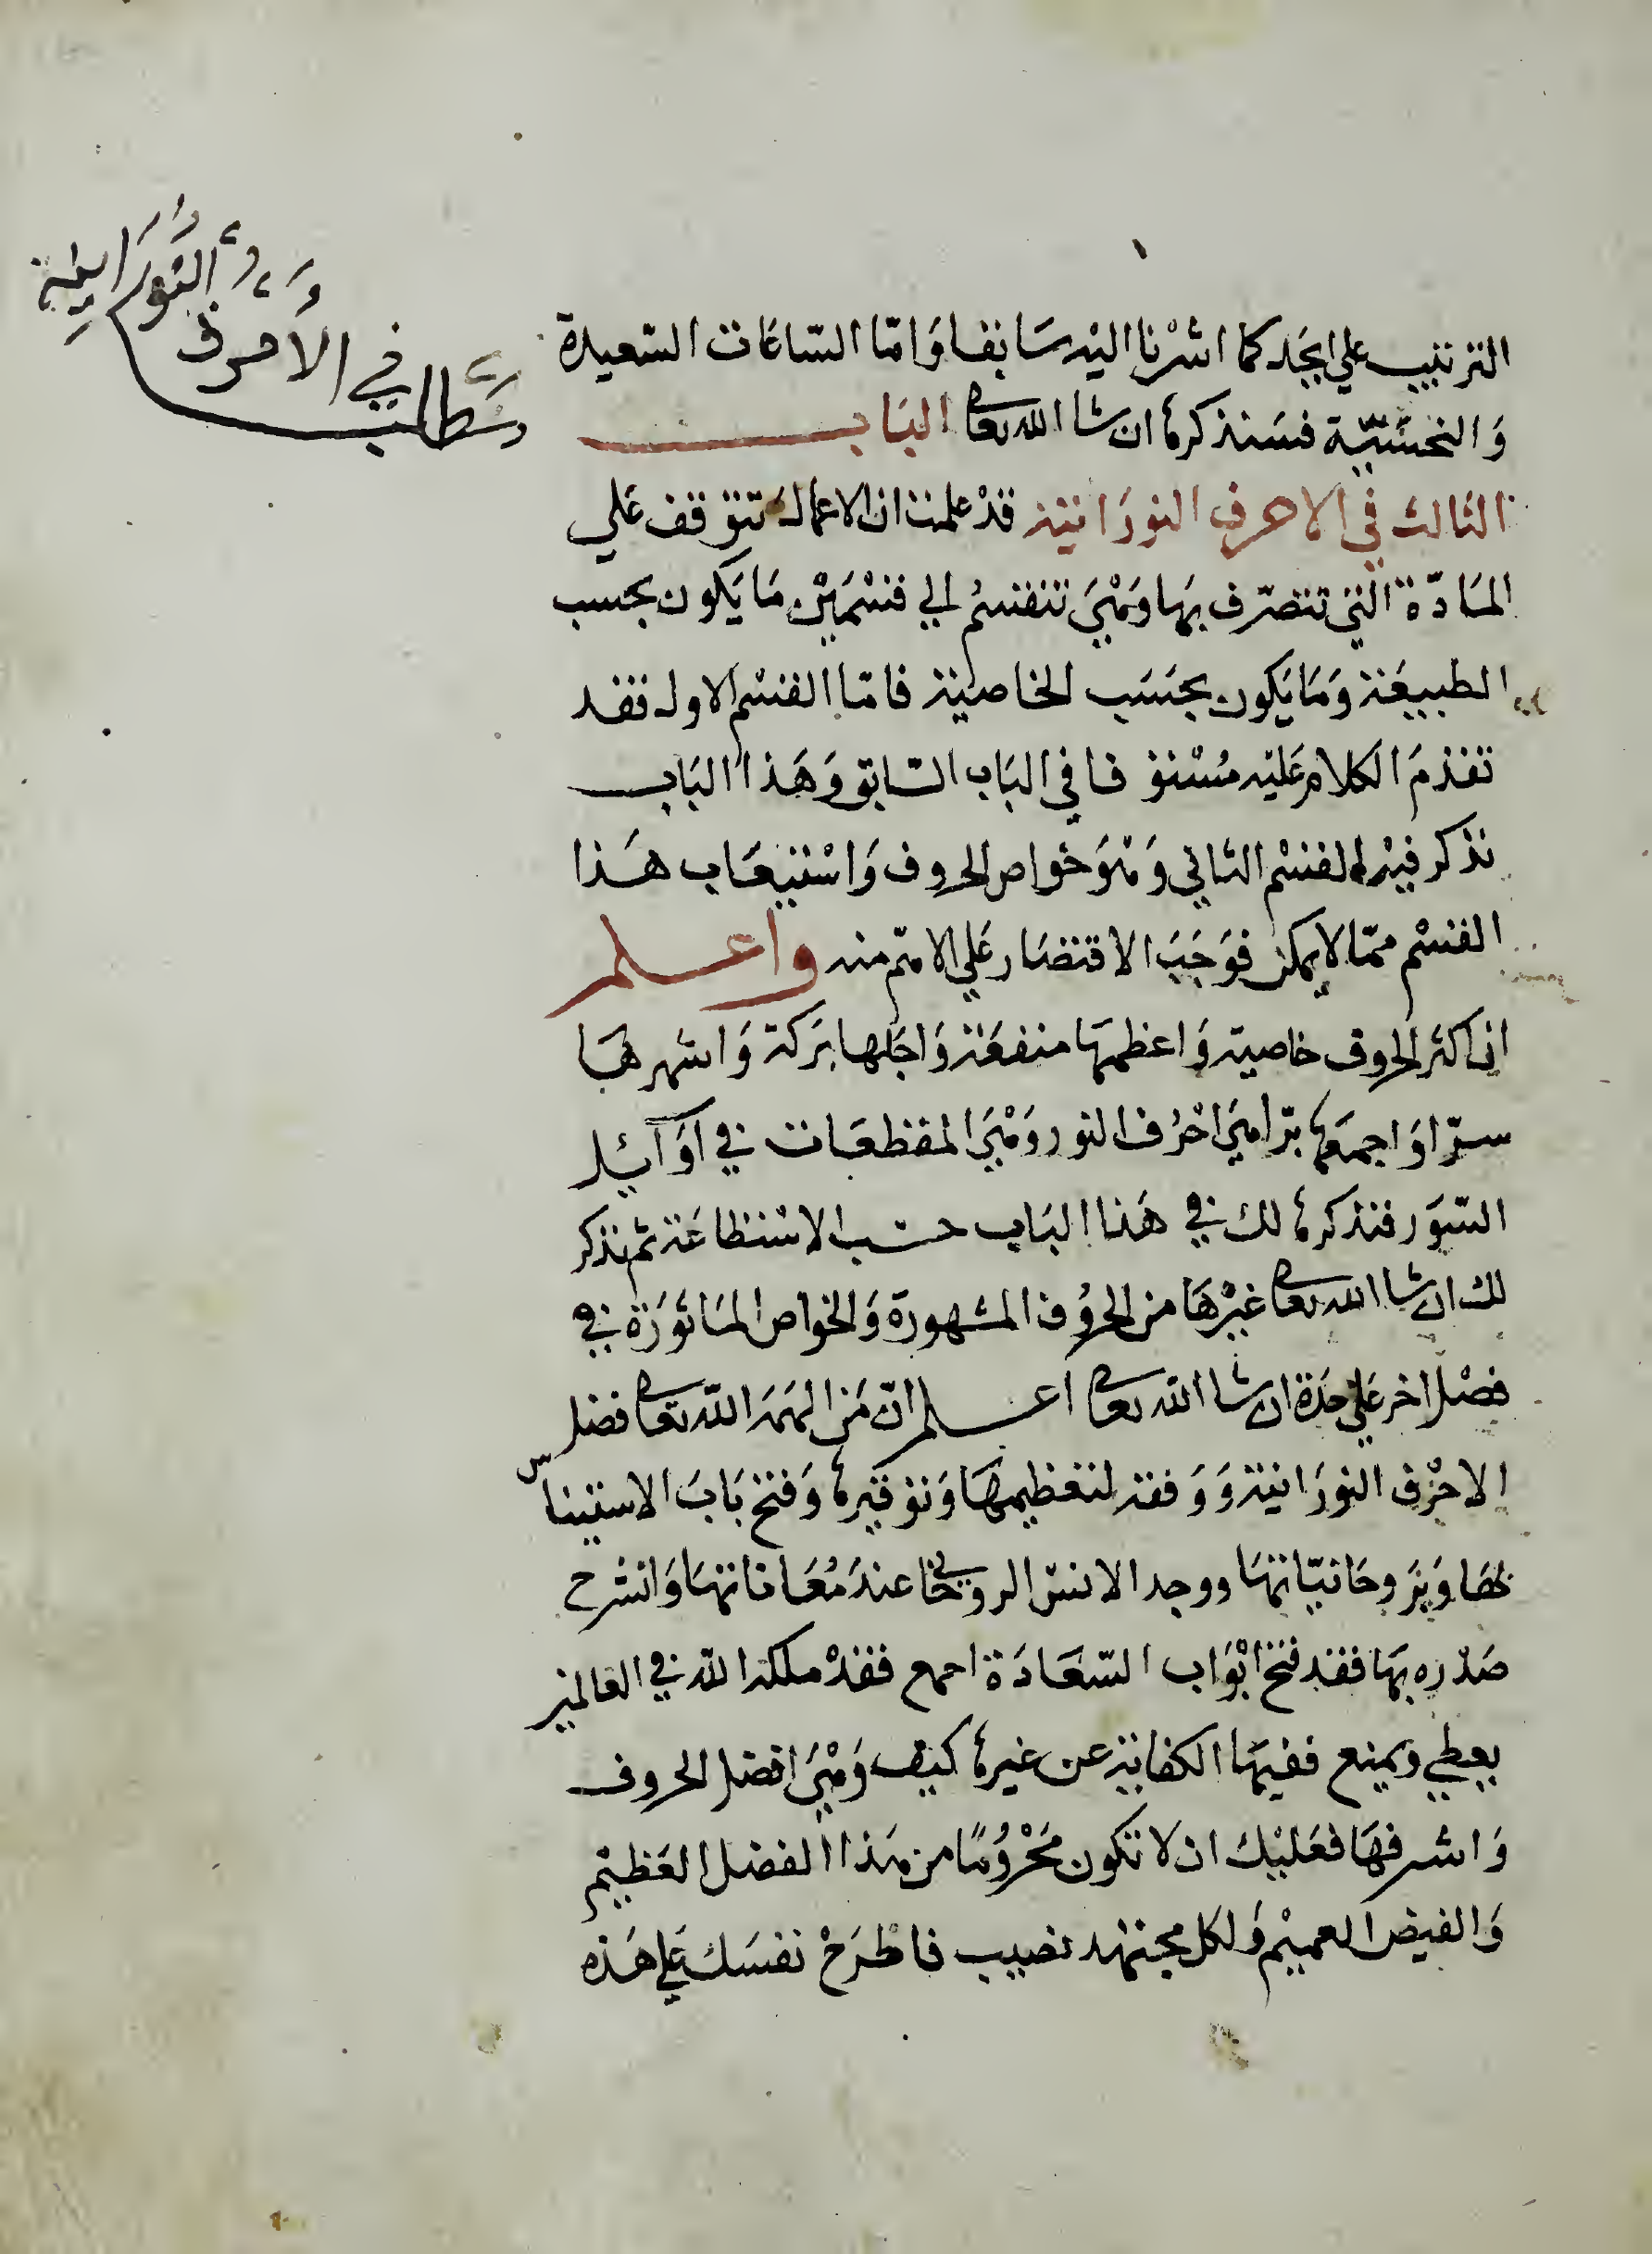 مطلب
في الاحرف
النورانية
الترتيب علي ابجد كما اشرنا اليه سابقا وَامّا السّاعَات السّعيدة
وَالنحسيّة فسَنذكرها ان شا الله تعالى البَاب
الثالث في الاحرف النورَانية قدْ علمت ان الاعمال تتوقف عَلي
المَادّة التي تتصرّف بهَا وَهْيَ تنقسمُ الي قسْمَيْن مَا يَكون بحسب
الطبيعَة وَمَا يَكون بحَسَب الخاصية فامّا القسْم الاول فقد
تقدمَ الكلام عَليْه مسْتوفا في البَاب السّابق وَهَذا البَاب
نذكر فيْه القسْم الثاني وَهْوَ خوَاص الحروف وَاسْتيعَاب هَذا
القسْم ممّا لا يمكن فوَجَبَ الاقتصَار عَلي الاهمّ منه واعلم
ان اكثر الحروف خاصية وَاعظمهَا منفعَة وَاجَلها بَركة وَاشهرهَا
سرّا وَاجمعَها برّا هيَ احْرُف النور وَهْيَ المقطعَات في اوَآئل
السّوَر فنذكرها لك في هَذا البَاب حسب الاسْتطاعَة ثم نذكر
لك ان شا الله تعالى غيْرهَا من الحرُوف المشهورة وَالخواص المَاثوَرَة في
فصْل اخر عَلي حدَة ان شا الله تعالى اعلم انّ مَن الهمَهَ الله تعالى فضل
الاحْرف النورَانية وَوَفقه لتعظيمهَا وَتوقيرها وَفتح بَابَ الاستيناس
بهَا وَبرَوحَانيّاتهَا ووجد الانسَ الروحاني عندَ مُعَاناتهَا وَانشرح
صَدْره بهَا فقد فتح ابْوَاب السّعَادَة اجمع فقدْ ملكه الله في العَالمين
يعطي ويمنع ففيهَا الكفاية عن غيرها كيف وَهْيَ افضل الحروف
وَاشرفهَا فعَليْكَ ان لا تكون مَحْرُومًا من هَذا الفضل العَظيْم
وَالفيض العميْم وَلكل مجتهد نصيب فاطْرَحْ نفسَك عَلي هَذه